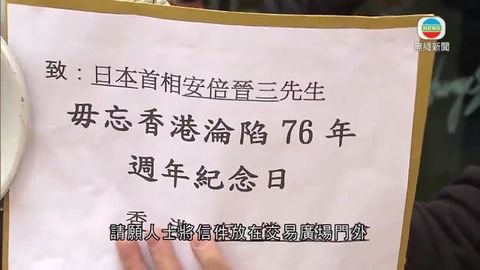 NEWS
無綫新聞
致：日本首相安倍晉三先生
毋忘香港淪陷 76 年
週年紀念日
香
請願人士將信件放在交易廣場門外